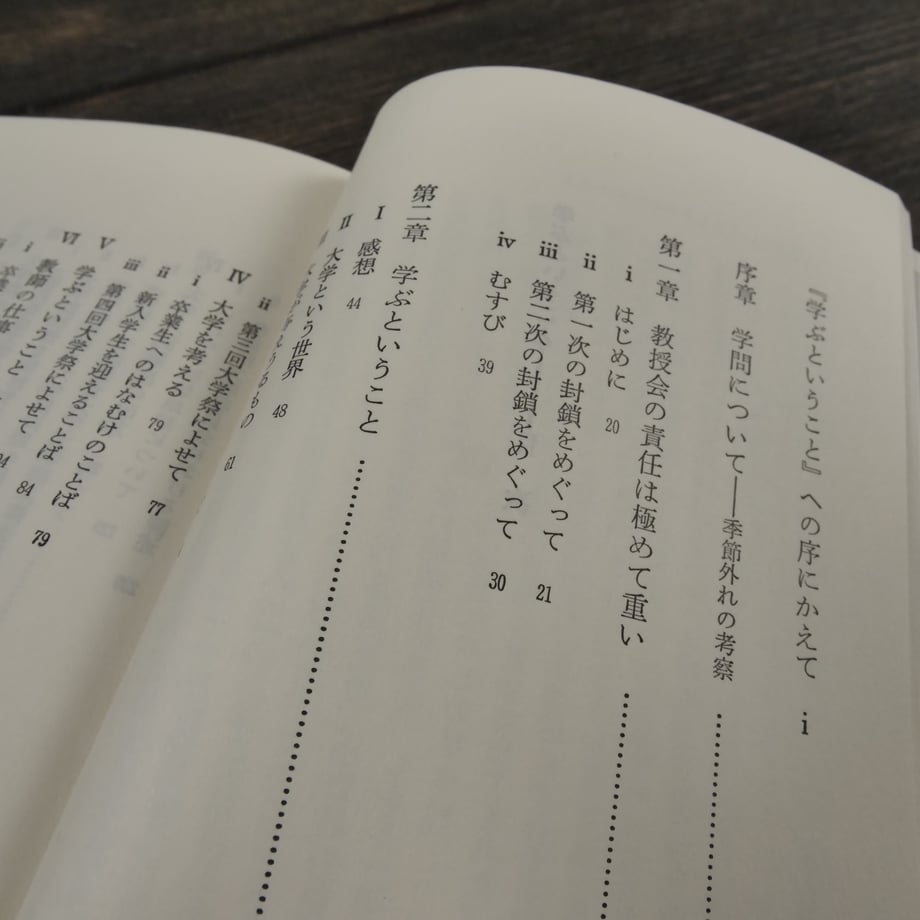 『学ぶということ』への序にかえて i
序章 学問について──季節外れの考察 ……
第一章 教授会の責任は極めて重い ……
i はじめに 20
ii 第一次の封鎖をめぐって 21
iii 第二次の封鎖をめぐって 30
iv むすび 39
第二章 学ぶということ ……
I 感想 44
II 大学という世界 48
61
ii 第三回大学祭によせて 77
IV 大学を考える
i 卒業生へのはなむけのことば 79
ii 新入学生を迎えることば 79
iii 第四回大学祭によせて 84
V 学ぶということ
VI 教師の仕事
i